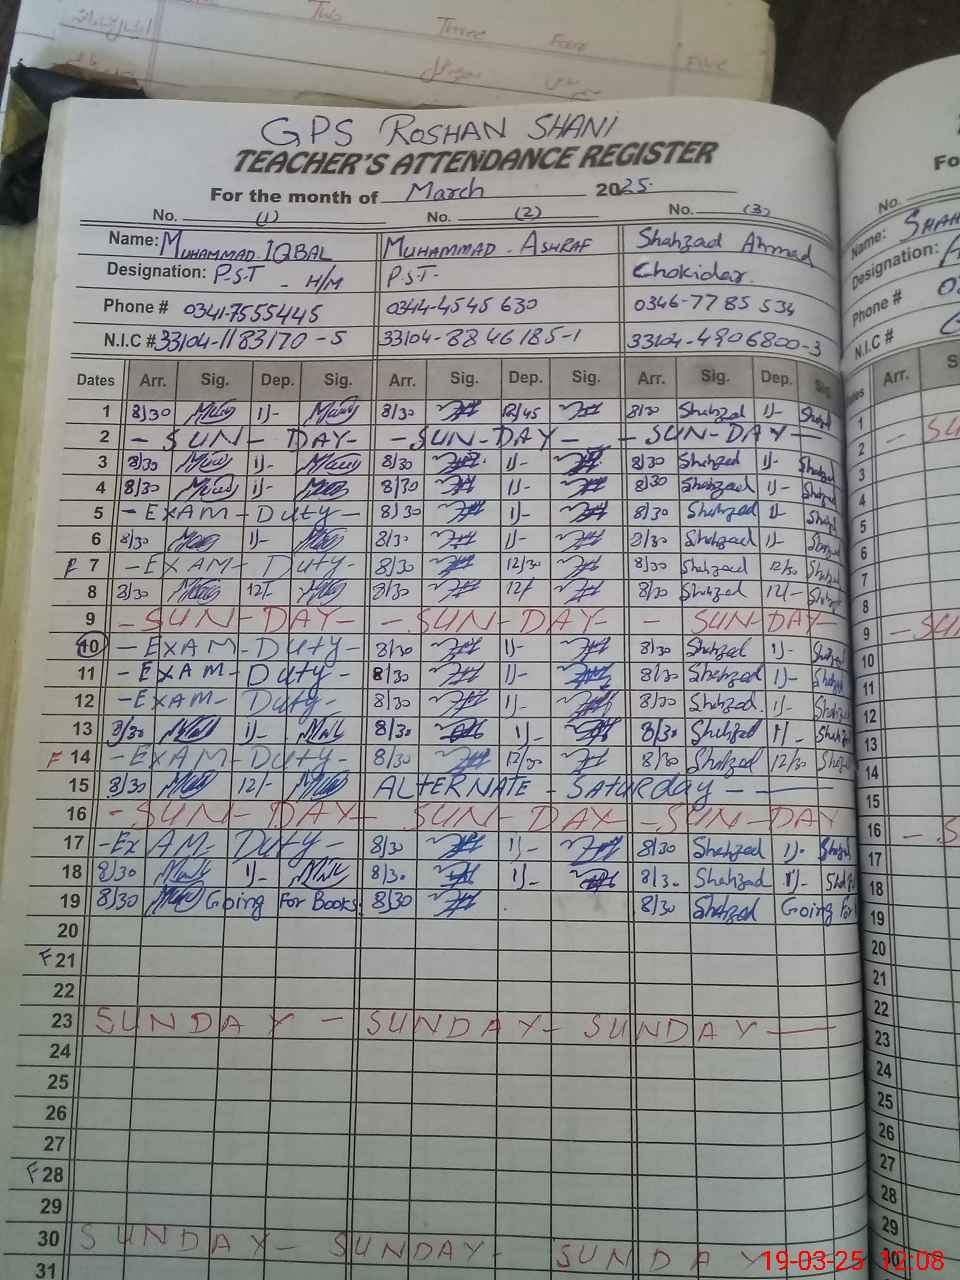 Two
Three Four
Five
GPS ROSHAN SHANI
TEACHER'S ATTENDANCE REGISTER
For the month of March 2025
No. (1) No. (2) No. (3)
Name: MUHAMMAD IQBAL MUHAMMAD ASHRAF Shahzad Ahmad
Designation: P.S.T - H/M P.S.T- Chokidar.
Phone # 0341-7555445 0344-4545 630 0346-7785 534
N.I.C # 33104-1183170-5 33104-8846185-1 33104-4906800-3
Dates Arr. Sig. Dep. Sig. Arr. Sig. Dep. Sig. Arr. Sig. Dep. Sig.
1 8/30 1/- 8/30 12/45 8/30 Shahzad 1/- Shahzad
2 - SUN - DAY - - SUN-DAY - - SUN-DAY -
3 8/30 1/- 8/30 1/- 8/30 Shahzad 1/- Shahzad
4 8/30 1/- 8/30 1/- 8/30 Shahzad 1/- Shahzad
5 - EXAM - Duty - 8/30 1/- 8/30 Shahzad 1/- Shahzad
6 8/30 1/- 8/30 1/- 8/30 Shahzad 1/- Shahzad
F 7 - EXAM - Duty - 8/30 12/30 8/30 Shahzad 12/30 Shahzad
8 8/30 12/- 8/30 12/ 8/30 Shahzad 12/- Shahzad
9 - SUN - DAY - - SUN - DAY - - SUN DAY -
10 - EXAM - Duty - 8/30 1/- 8/30 Shahzad 1/- Shahzad
11 - EXAM - Duty - 8/30 1/- 8/30 Shahzad 1/- Shahzad
12 - EXAM - Duty - 8/30 1/- 8/30 Shahzad 1/- Shahzad
13 8/30 1/- 8/30 1/- 8/30 Shahzad 1/- Shahzad
F 14 - EXAM - Duty - 8/30 12/30 8/30 Shahzad 12/30 Shahzad
15 8/30 12/- ALTERNATE - SATURday - -
16 - SUN - DAY - SUN - DAY - SUN - DAY
17 - EXAM - Duty - 8/30 1/- 8/30 Shahzad 1/- Shahzad
18 8/30 1/- 8/30 1/- 8/30 Shahzad 1/- Shahzad
19 8/30 Going For Books 8/30 8/30 Shahzad Going For
20
F 21
22
23 SUNDAY - SUNDAY - SUNDAY -
24
25
26
27
F 28
29
30 SUNDAY - SUNDAY - SUNDAY
31
No.
Name: SHAH
Designation: A
Phone #
N.I.C #
Arr.
19-03-25 12:08